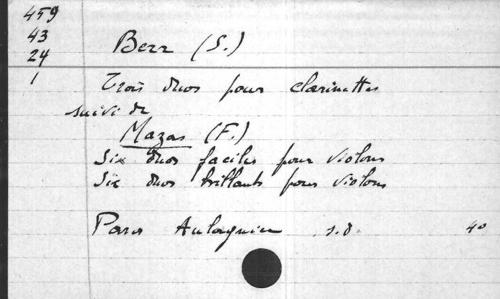 459
43
24
1
Berr (S.)
Trois duos pour clarinettes
suivi de
Mazas (F.)
Six duos faciles pour violons
Six duos brillants pour violons
Paris Aulagnier s.d. 40